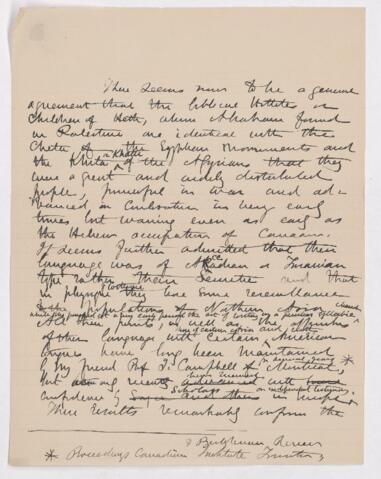 There seems now to be a general
agreement that the biblical Hittites or
Children of Heth, whom Abraham found
in Palestine are identical with the
Cheta of the Egyptian Monuments and
the Khita or Khatti of the Assyrians that they
were a great and widely distributed
people, powerful in war and ad-
vanced in civilization in very early
times but waning even as early as
the Hebrew occupation of Canaan.
It seems further admitted that their
language was of Akkadian or Turanian
type rather than Semitic and that
in physique they bore some resemblance
to the populations of Northern Asia
All these points, as well as the
of their language with certain American
tongues have long been maintained
by my friend Prof J. Campbell of Montreal, *
but among recent with
confidence by
These results remarkably confirm the
& Bibliothecam Review
* Proceedings Canadian Institute Toronto